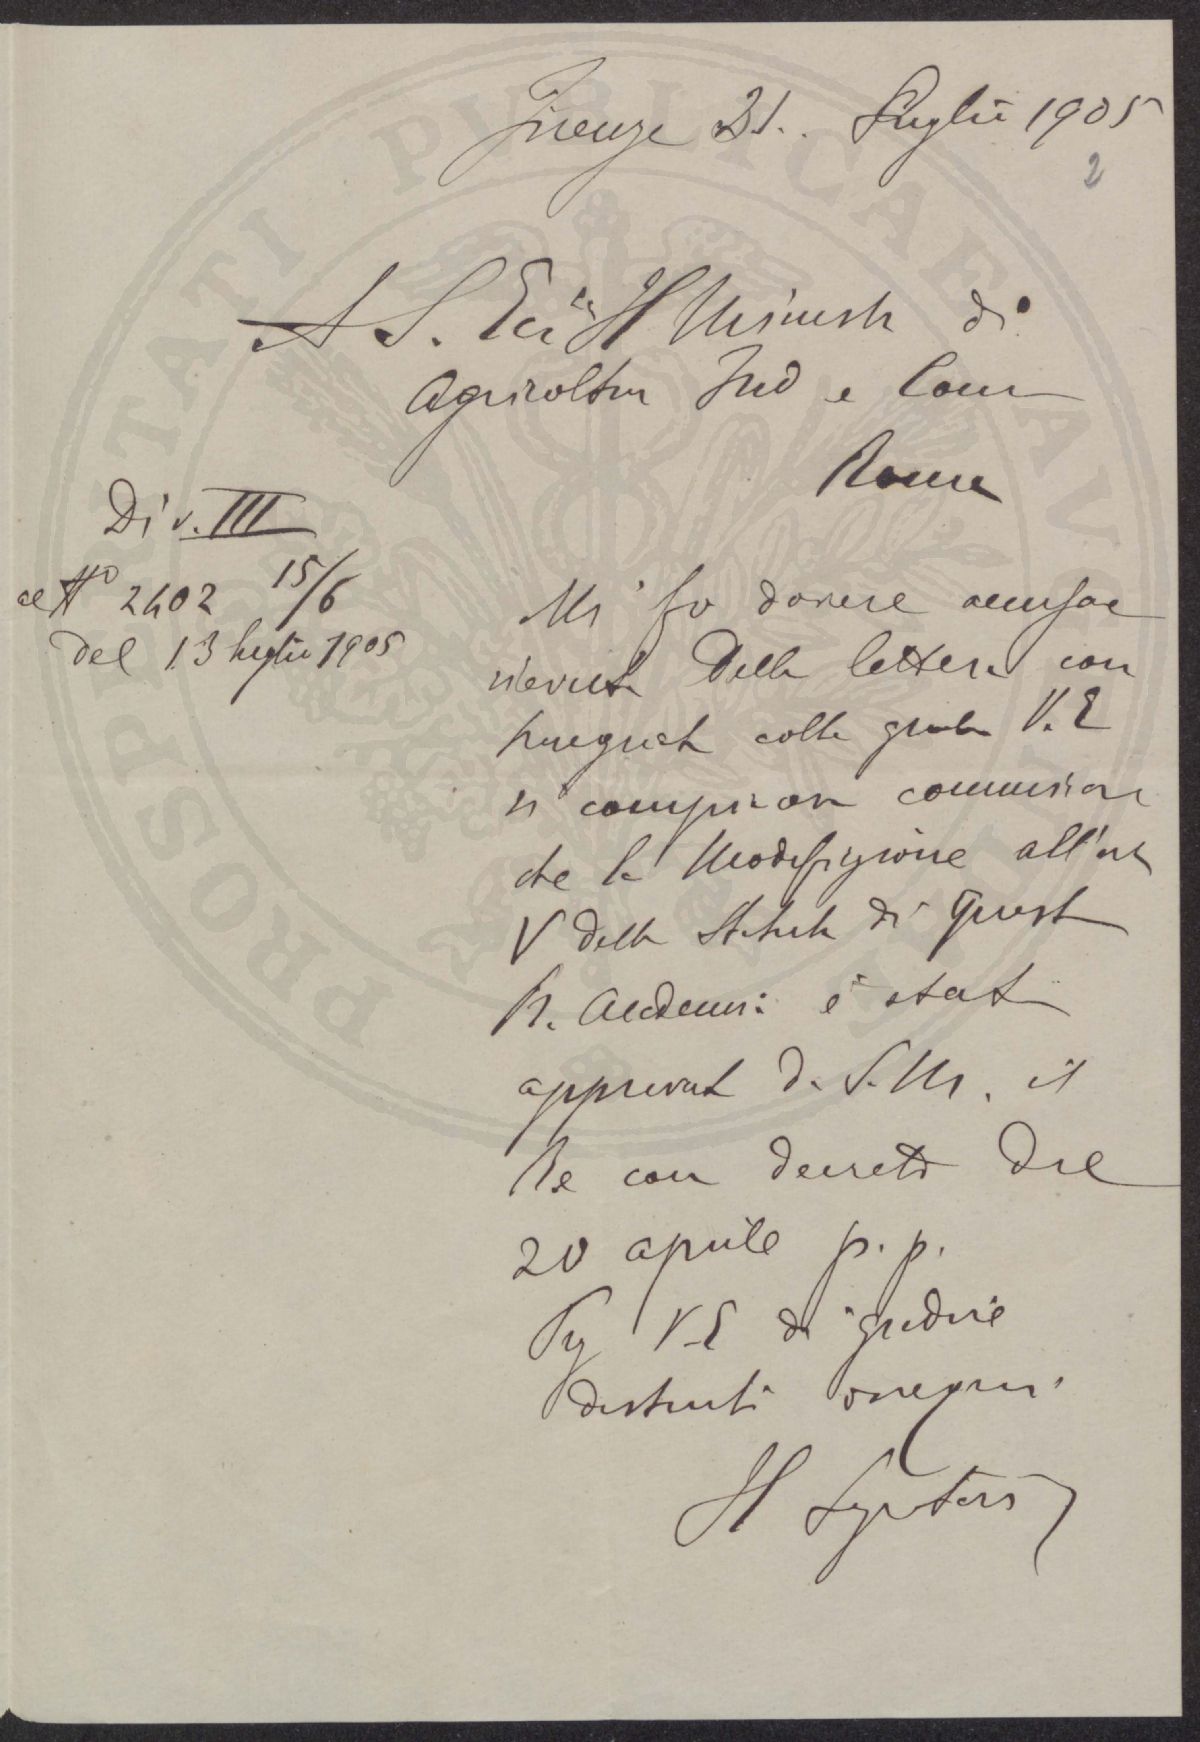 Firenze 31. Luglio 1905
2
A S. Ecc.za Il Ministro di
Agricoltura Ind e Com
Roma
Div. III
al N° 2402 15/6
del 13 luglio 1905
Mi fo dovere accusare
ricevuta della lettera con
pregiata colla quale V. E
si compiaceva comunicare
che la modificazione all'art
V dello Statuto di questa
R. Accademia è stata
approvata da S. M. il
Re con decreto del
20 aprile p. p.
Prego V. E di gradire
distinti ossequi
Il Segretario
PROSPERITATI PUBLICAE AUGENDAE